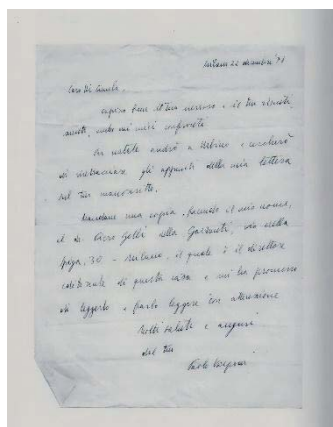 Milano 22 dicembre '78
Caro Di
capisco bene il tuo nervoso e il tuo
anche nei miei confronti.
A natale andrò a Urbino e cercherò
di rintracciare gli appunti della mia lettura
sul tuo manoscritto.
Mandane una copia, facendo il mio nome,
al dr. Gelli della Garzanti, via della
Spiga, 30 - Milano, il quale è il direttore
editoriale di questa casa e mi ha promesso
di leggerlo e farlo leggere con attenzione
Molti saluti e auguri
dal tuo
Paolo Volponi